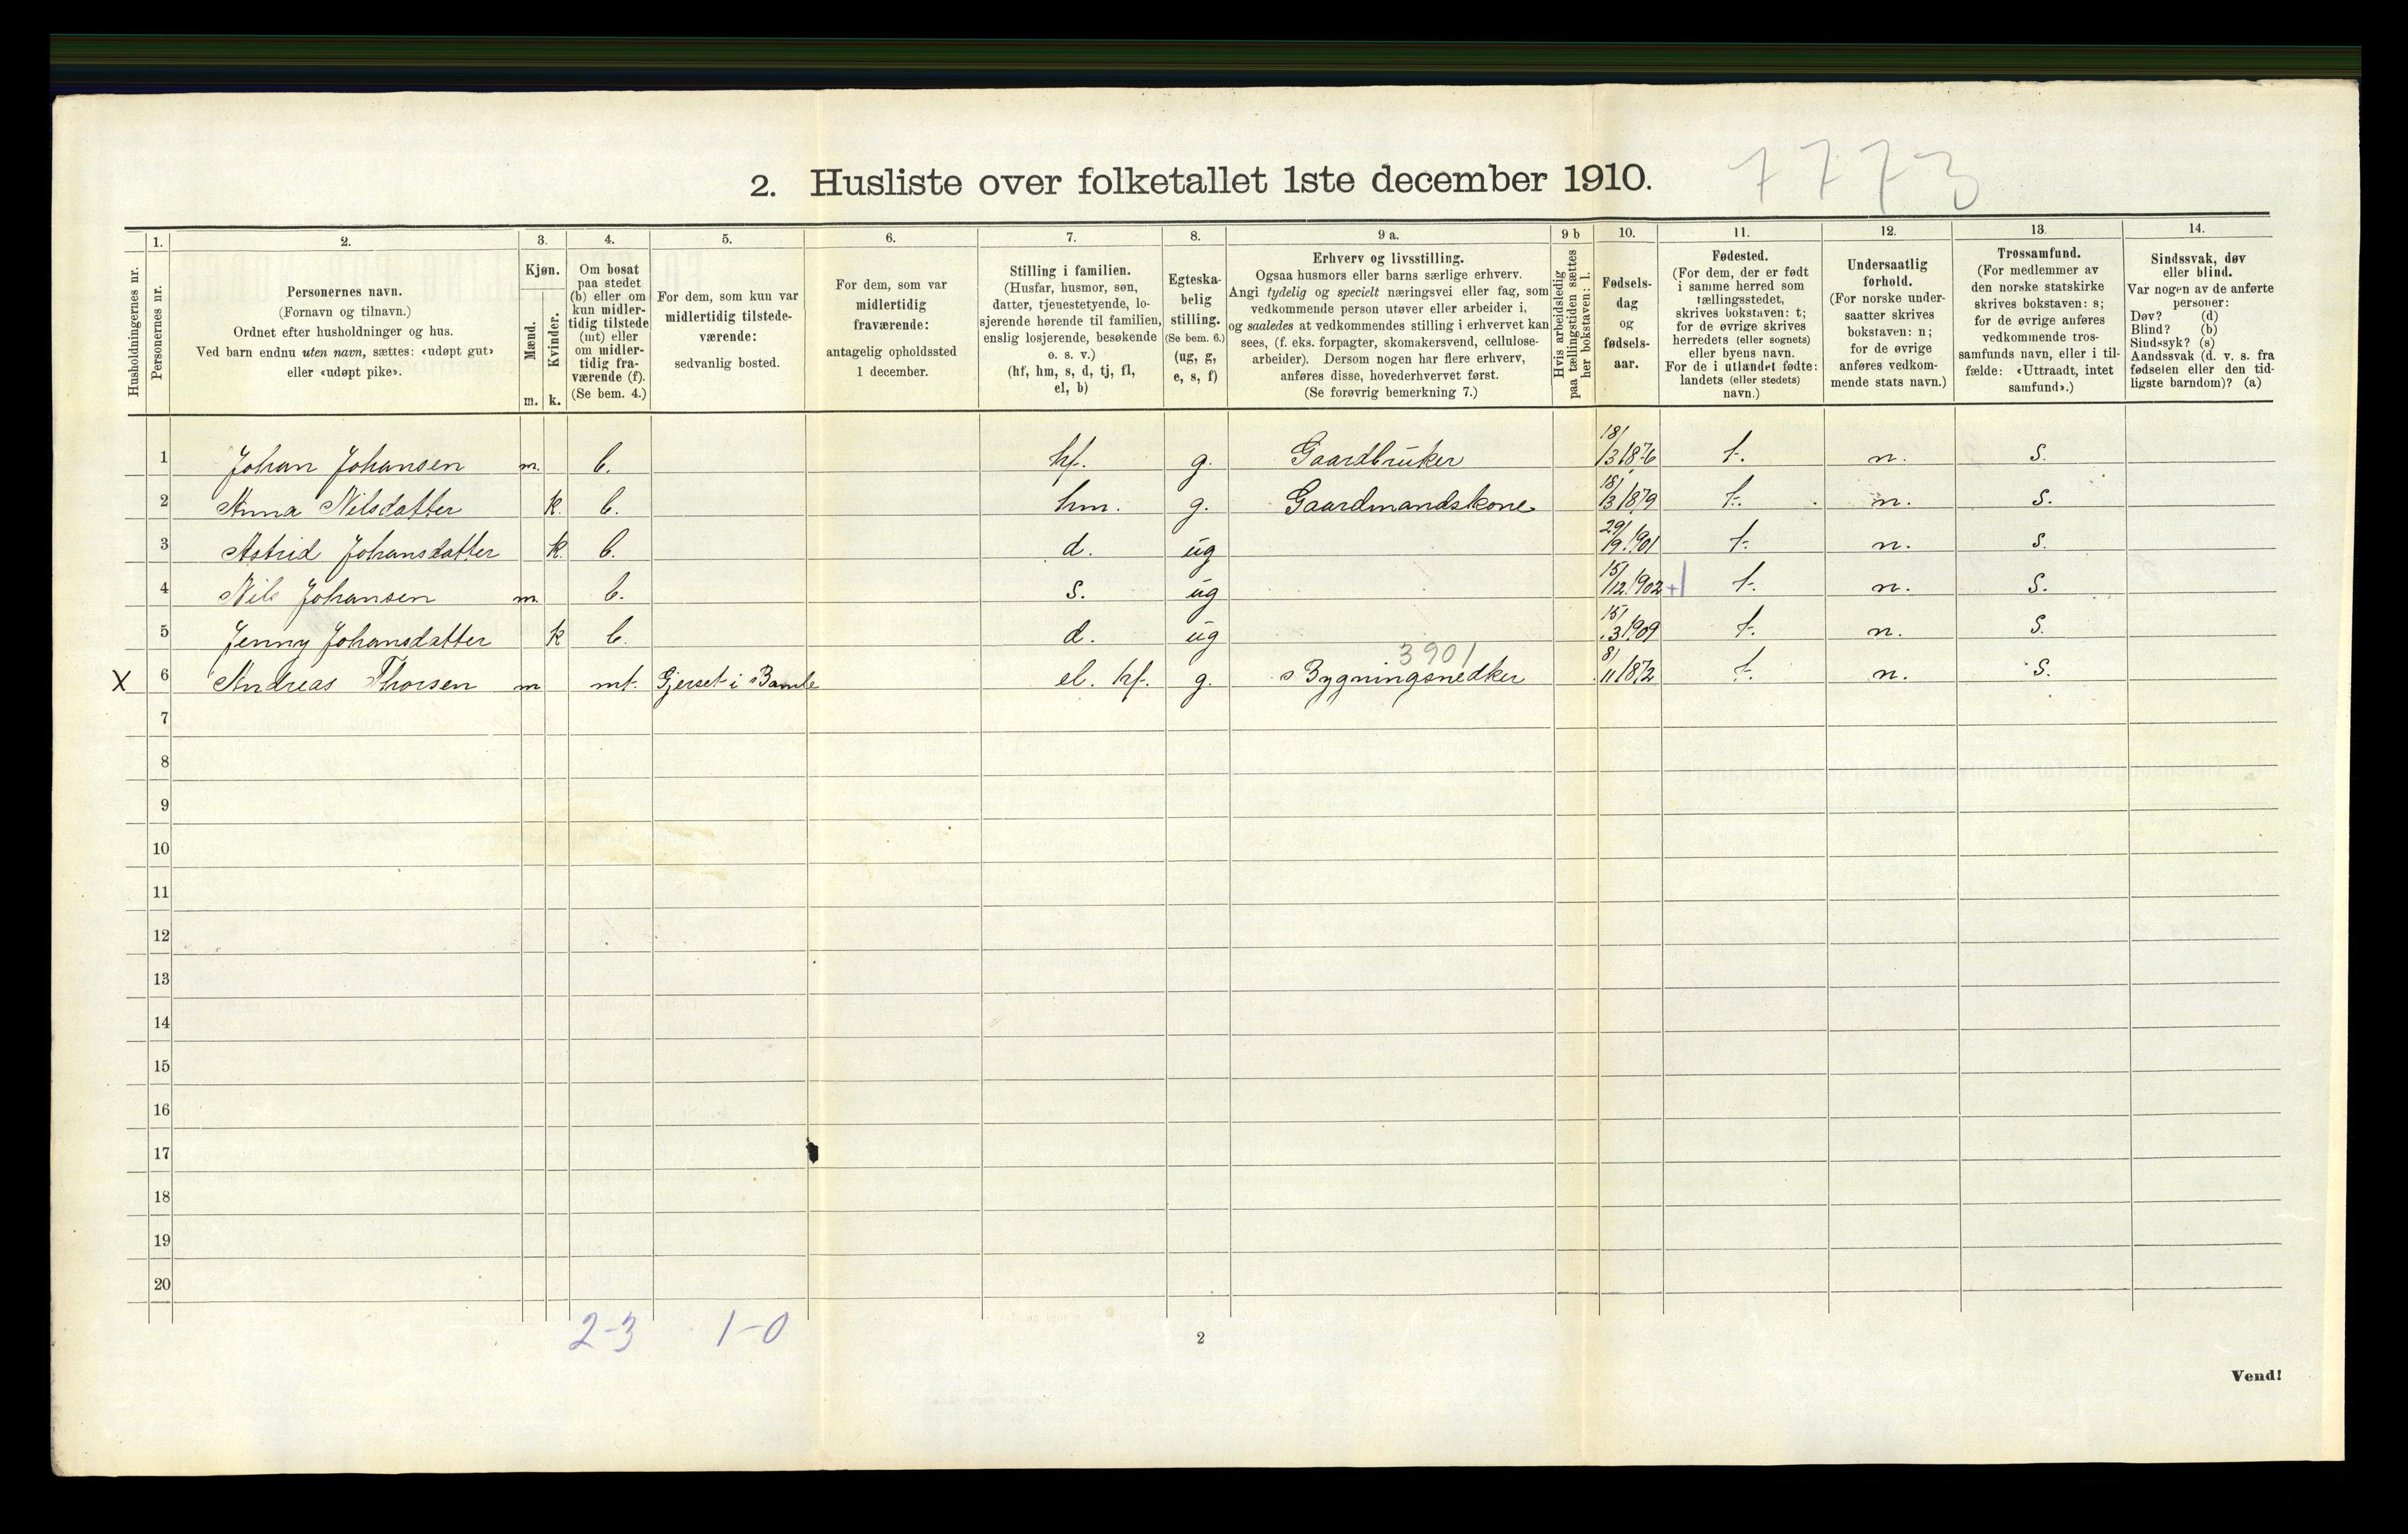 2. Husliste over folketallet 1ste december 1910. 7773
Husholdningernes nr.
1. Personernes nr.
2. Personernes navn.
(Fornavn og tilnavn.)
Ordnet efter husholdninger og hus.
Ved barn endnu uten navn, sættes: «udøpt gut»
eller «udøpt pike».
3. Kjøn.
Mænd. Kvinder.
m. k.
4. Om bosat
paa stedet
(b) eller om
kun midler-
tidig tilstede
(mt) eller
om midler-
tidig fra-
værende (f).
(Se bem. 4.)
5. For dem, som kun var
midlertidig tilstede-
værende:
sedvanlig bosted.
6. For dem, som var
midlertidig
fraværende:
antagelig opholdssted
1 december.
7. Stilling i familien.
(Husfar, husmor, søn,
datter, tjenestetyende, lo-
sjerende hørende til familien,
enslig losjerende, besøkende
o. s. v.)
(hf, hm, s, d, tj, fl,
el, b)
8. Egteska-
belig
stilling.
(Se bem. 6.)
(ug, g,
e, s, f)
9 a. Erhverv og livsstilling.
Ogsaa husmors eller barns særlige erhverv.
Angi tydelig og specielt næringsvei eller fag, som
vedkommende person utøver eller arbeider i,
og saaledes at vedkommendes stilling i erhvervet kan
sees, (f. eks. forpagter, skomakersvend, cellulose-
arbeider). Dersom nogen har flere erhverv,
anføres disse, hovederhvervet først.
(Se forøvrig bemerkning 7.)
9 b Hvis arbeidsledig
paa tællingstiden sættes
her bokstaven: l.
10. Fødsels-
dag
og
fødsels-
aar.
11. Fødested.
(For dem, der er født
i samme herred som
tællingsstedet,
skrives bokstaven: t;
for de øvrige skrives
herredets (eller sognets)
eller byens navn.
For de i utlandet fødte:
landets (eller stedets)
navn.)
12. Undersaatlig
forhold.
(For norske under-
saatter skrives
bokstaven: n;
for de øvrige
anføres vedkom-
mende stats navn.)
13. Trossamfund.
(For medlemmer av
den norske statskirke
skrives bokstaven: s;
for de øvrige anføres
vedkommende tros-
samfunds navn, eller i til-
fælde: «Uttraadt, intet
samfund».)
14. Sindssvak, døv
eller blind.
Var nogen av de anførte
personer:
Døv? (d)
Blind? (b)
Sindssyk? (s)
Aandssvak (d. v. s. fra
fødselen eller den tid-
ligste barndom)? (a)
1 Johan Johansen m. b. hf. g. Gaardbruker 18/3 1876 t. n. s.
2 Anna Nilsdatter k. b. hm. g. Gaardmandskone 18/3 1879 t. n. s.
3 Astrid Johansdatter k. b. d. ug 29/9 1901 t. n. s.
4 Nils Johansen m. b. s. ug 15/12 1902 +1 t. n. s.
5 Jenny Johansdatter k b. d. ug 15/3 1909 t. n. s.
3901
X 6 Andreas Thorsen m mt. Gjerset i Bamle el. hf. g. Bygningsnedker 8/11 1872 t. n. s.
7
8
9
10
11
12
13
14
15
16
17
18
19
20
2-3 1-0
2
Vend!